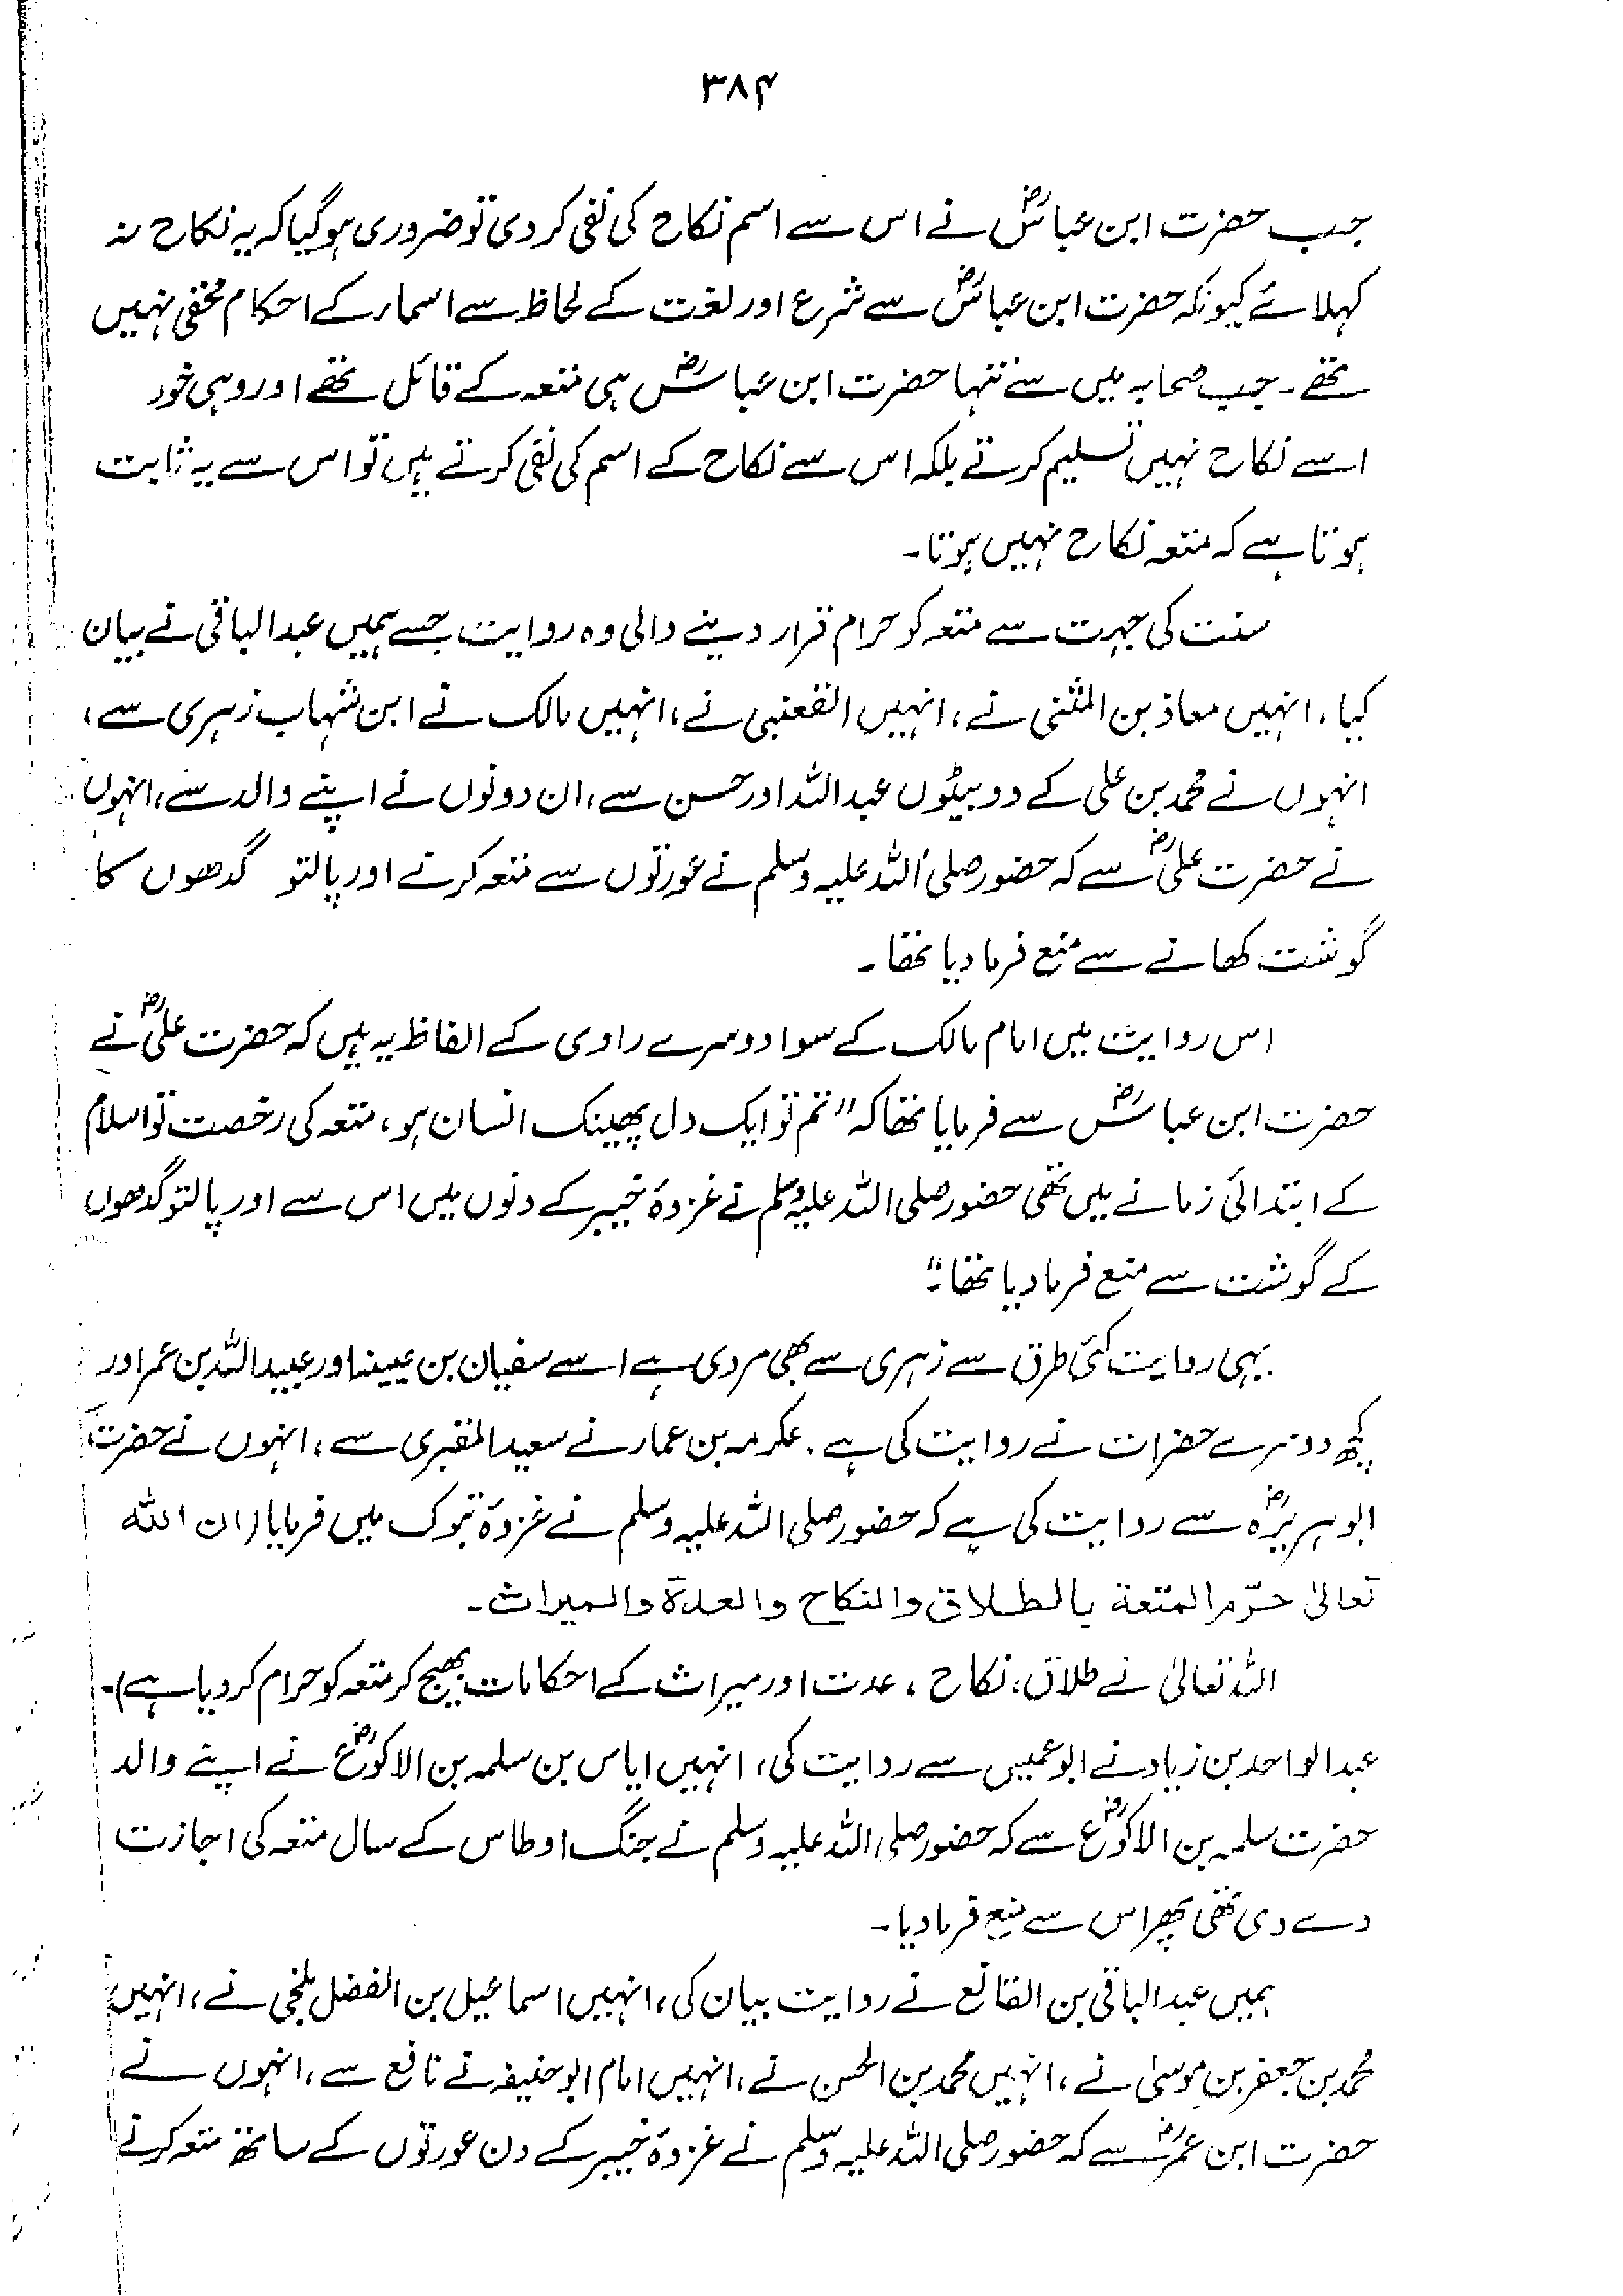 ۳۸۴
جب حضرت ابن عباسؓ نے اس سے اسم نکاح کی نفی کر دی تو ضروری ہو گیا کہ یہ نکاح نہ
کہلائے کیونکہ حضرت ابن عباسؓ سے شرع اور لغت کے لحاظ سے اسماء کے احکام مخفی نہیں
تھے۔ جب صحابہ میں سے تنہا حضرت ابن عباسؓ ہی متعہ کے قائل تھے اور وہی خود
اسے نکاح نہیں تسلیم کرتے بلکہ اس سے نکاح کے اسم کی نفی کرتے ہیں تو اس سے یہ ثابت
ہوتا ہے کہ متعہ نکاح نہیں ہوتا۔
سنت کی جہت سے متعہ کو حرام قرار دینے والی وہ روایت جسے ہمیں عبدالباقی نے بیان
کیا، انہیں معاذ بن المثنی نے، انہیں القعنبی نے، انہیں مالک نے ابن شہاب زہری سے،
انہوں نے محمد بن علی کے دو بیٹوں عبداللہ اور حسن سے، ان دونوں نے اپنے والد سے، انہوں
نے حضرت علیؓ سے کہ حضور صلی اللہ علیہ وسلم نے عورتوں سے متعہ کرنے اور پالتو گدھوں کا
گوشت کھانے سے منع فرما دیا تھا۔
اس روایت میں امام مالک کے سوا دوسرے راوی کے الفاظ یہ ہیں کہ حضرت علیؓ نے
حضرت ابن عباسؓ سے فرمایا تھا کہ "تم تو ایک دل پھینک انسان ہو، متعہ کی رخصت تو اسلام
کے ابتدائی زمانے میں تھی حضور صلی اللہ علیہ وسلم نے غزوۂ خیبر کے دنوں میں اس سے اور پالتو گدھوں
کے گوشت سے منع فرما دیا تھا۔"
یہی روایت کئی طرق سے زہری سے بھی مروی ہے اسے سفیان بن عیینہ اور عبیداللہ بن عمر اور
کچھ دوسرے حضرات نے روایت کی ہے۔ عکرمہ بن عمار نے سعید المقبری سے، انہوں نے حضرت
ابوہریرہؓ سے روایت کی ہے کہ حضور صلی اللہ علیہ وسلم نے غزوۂ تبوک میں فرمایا (ان اللہ
تعالیٰ حرّم المتعة بالطلاق والنکاح والعدة والمیراث۔
اللہ تعالیٰ نے طلاق، نکاح، عدت اور میراث کے احکامات بھیج کر متعہ کو حرام کر دیا ہے)۔
عبدالواحد بن زیاد نے ابوعمیس سے روایت کی، انہیں ایاس بن سلمہ بن الاکوعؓ نے اپنے والد
حضرت سلمہ بن الاکوعؓ سے کہ حضور صلی اللہ علیہ وسلم نے جنگ اوطاس کے سال متعہ کی اجازت
دے دی تھی پھر اس سے منع فرما دیا۔
ہمیں عبدالباقی بن القانع نے روایت بیان کی، انہیں اسماعیل بن الفضل بلخی نے، انہیں
محمد بن جعفر بن موسیٰ نے، انہیں محمد بن الحسن نے، انہیں امام ابوحنیفہ نے نافع سے، انہوں نے
حضرت ابن عمرؓ سے کہ حضور صلی اللہ علیہ وسلم نے غزوۂ خیبر کے دن عورتوں کے ساتھ متعہ کرنے